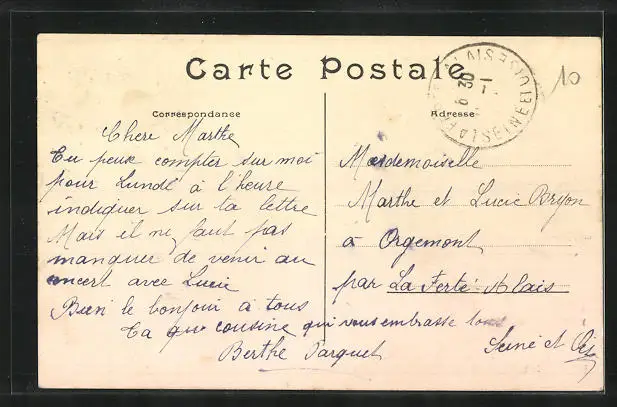 Carte Postale
10
Correspondance
Chere Marthe
Tu peux compter sur moi
pour Lundé à l'heure
indiquer sur ta lettre
Mais il ne faut pas
manquer de venir au
concert avec Lucie
Bien le bonjour à tous
Ta cousine qui vous embrasse tous
Berthe Parquet
Adresse
Mademoiselle
Marthe et Lucie Bryon
à Orgemont
par La Ferté-Alais
Seine et Oise